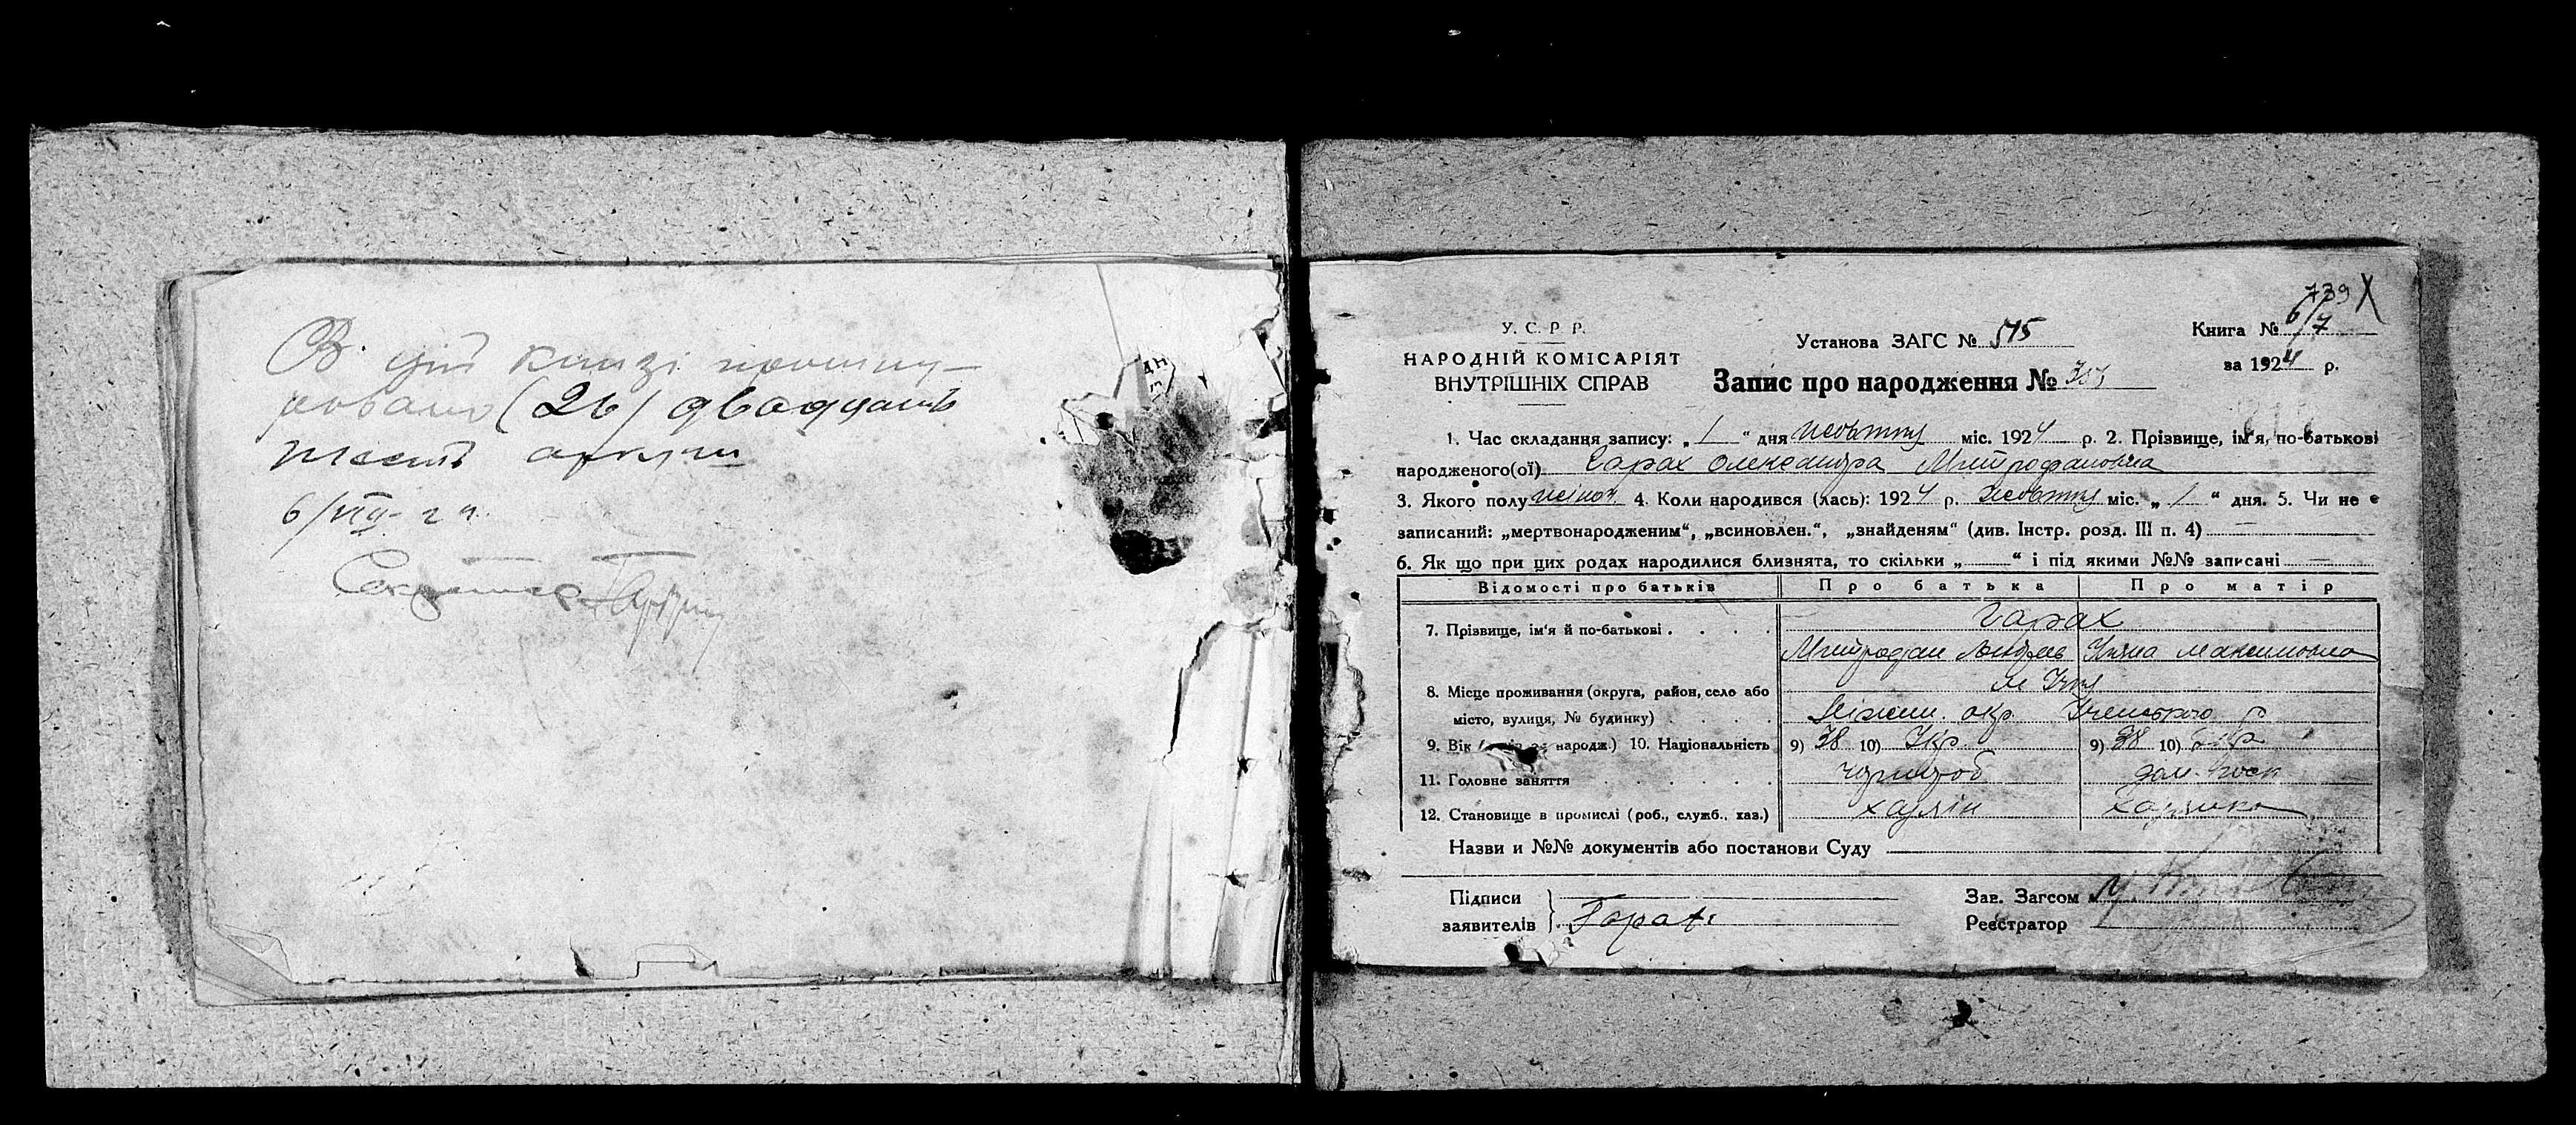 В цій книзі пронуму-
ровано (26) двадцять
шість аркуш
6/VIII-24.
Секретар
739 X
У. С. Р. Р.
НАРОДНІЙ КОМІСАРІЯТ
ВНУТРІШНІХ СПРАВ
Установа ЗАГС № 575
Книга № 6/7
за 1924 р.
Запис про народження №
1. Час складання запису: „ 1 “ дня жовтня міс. 1924 р. 2. Прізвище, ім'я, по-батькові
народженого(ої) Гарах Олександра Митрофановна
3. Якого полу жіноч. 4. Коли народився (лась): 1924 р. жовтня міс. „ 1 “ дня. 5. Чи не є
записаний: „мертвонародженим“, „всиновлен.“, „знайденям“ (див. Інстр. розд. III п. 4) —
6. Як що при цих родах народилися близнята, то скільки „ — “ і під якими №№ записані —
Відомості про батьків Про батька Про матір
7. Прізвище, ім'я й по-батькові . . . . Гарах
Митрофан Андрєєв Уляна Максимовна
8. Місце проживання (округа, район, село або м Ічня
місто, вулиця, № будинку) . . . . Ніжин. окр. Іченського р
9. Вік народж.) 10. Національність 9) 38 10) Укр. 9) 38 10) Укр
11. Головне заняття . . . . . хлібороб дом. госп
12. Становище в промислі (роб., служб., хаз.) хазяїн хазяйка
Назви и №№ документів або постанови Суду
Підписи
заявителів } Гарах
Зав. Загсом
Реєстратор